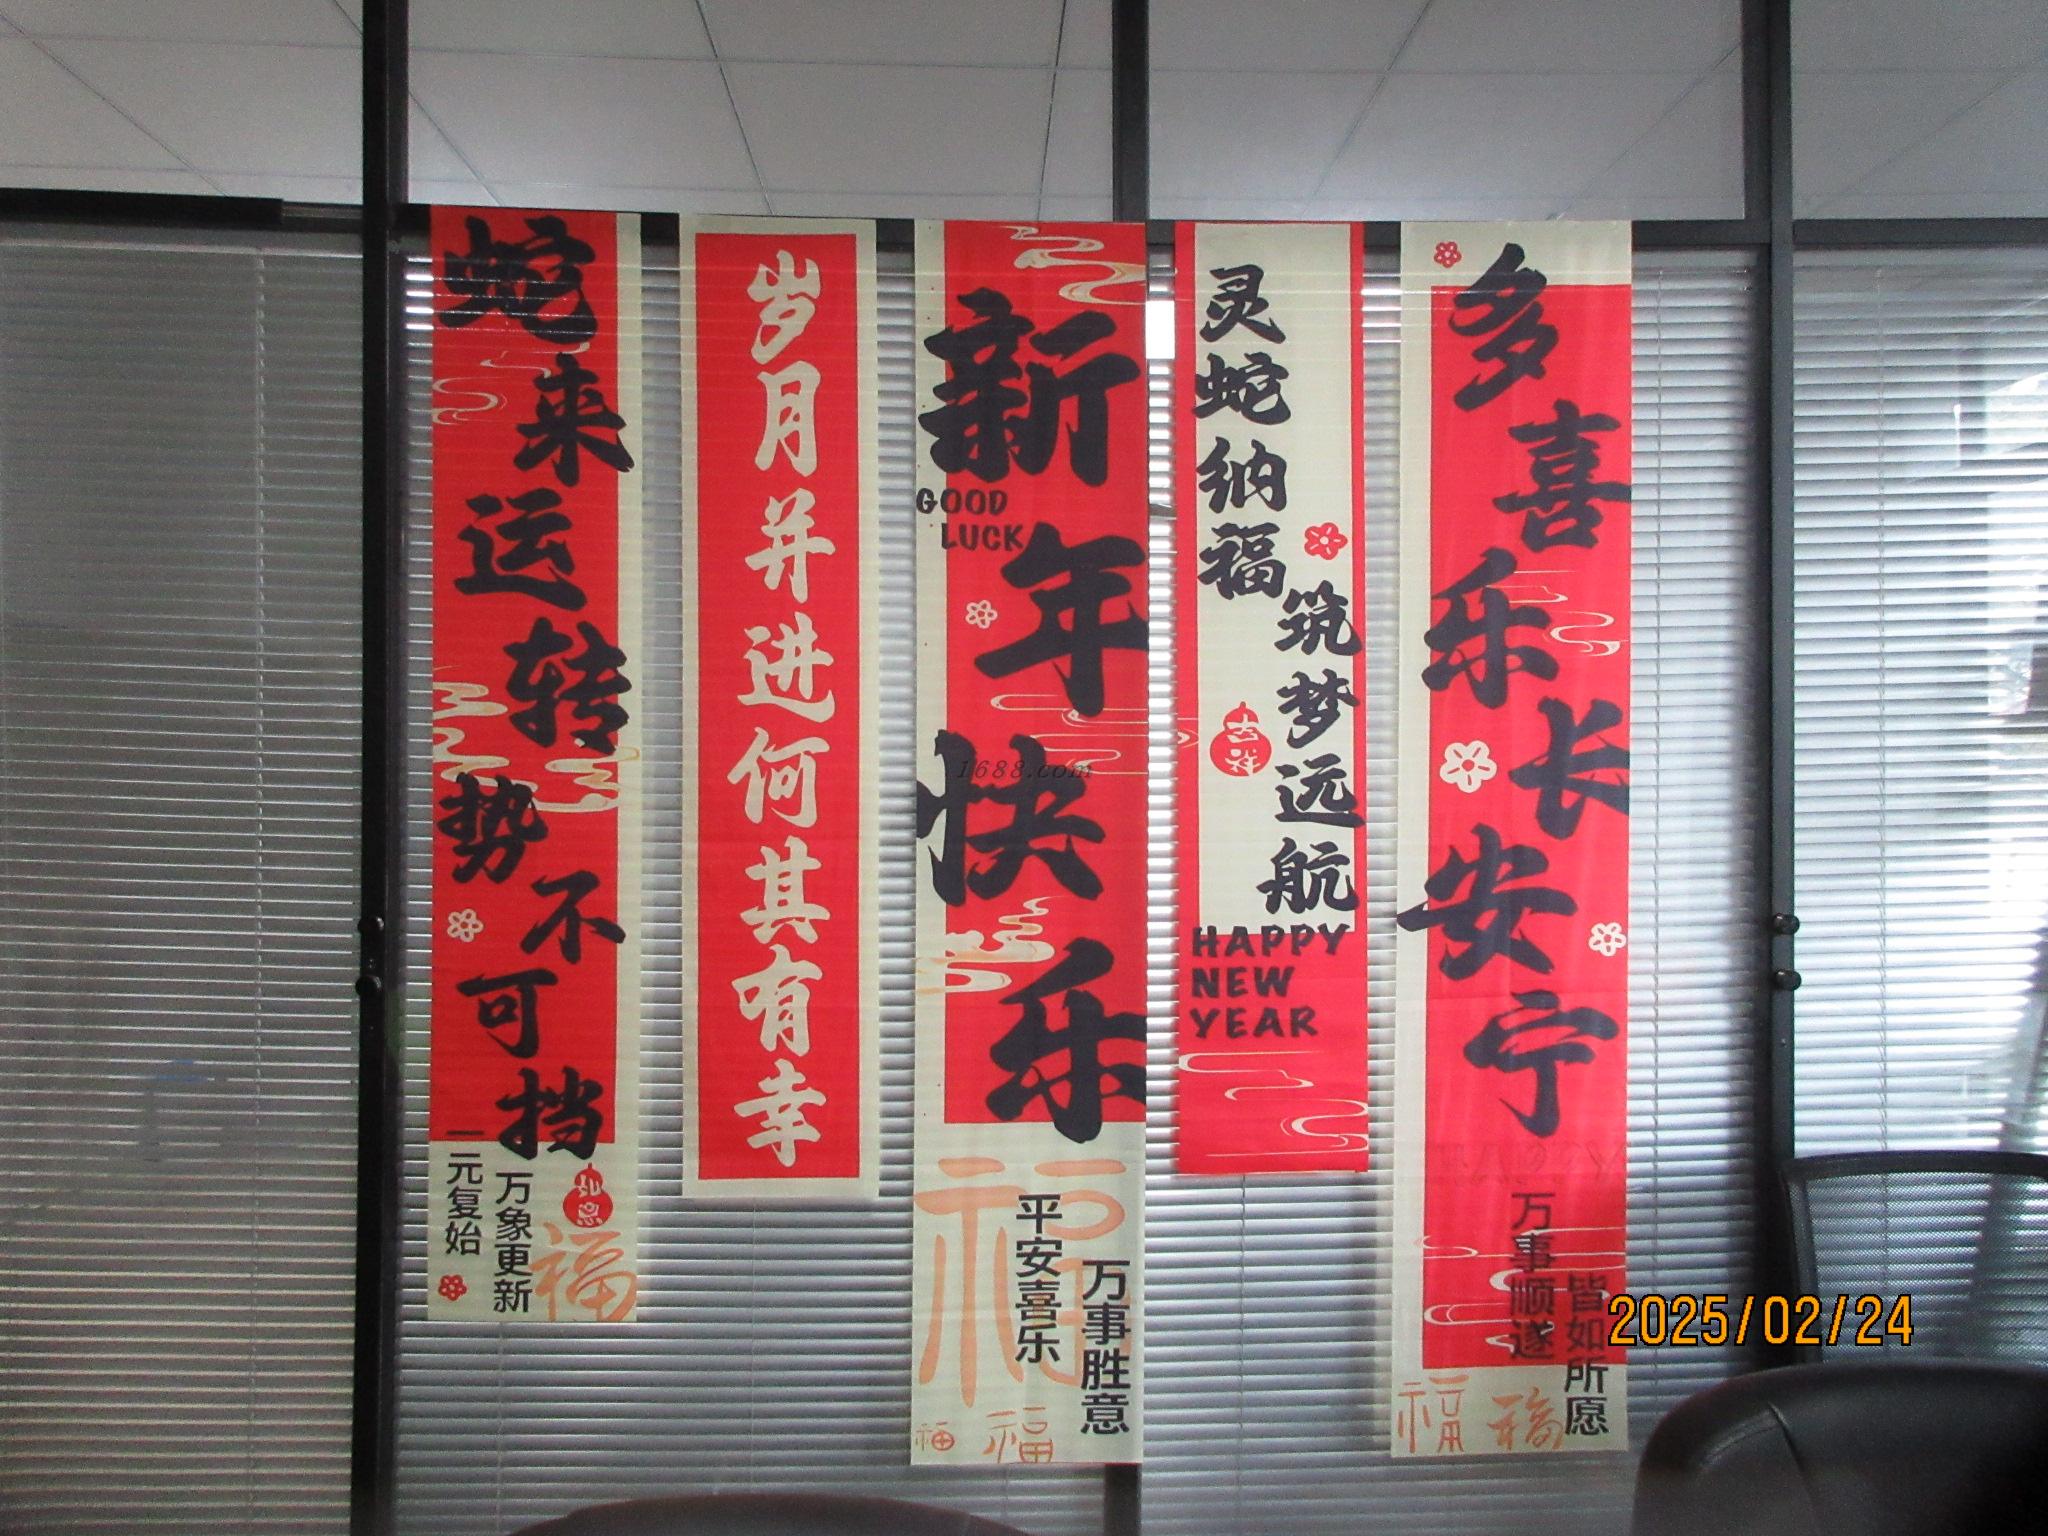 蛇来运转
势不可挡
一元复始
万象更新
福
岁月并进何其有幸
新年快乐
GOOD
LUCK
1688.com
福
平安喜乐
万事胜意
福
福
灵蛇纳福
筑梦远航
吉祥
HAPPY
NEW
YEAR
多喜乐长安宁
HAPPY
万事顺遂
皆如所愿
福
福
2025/02/24